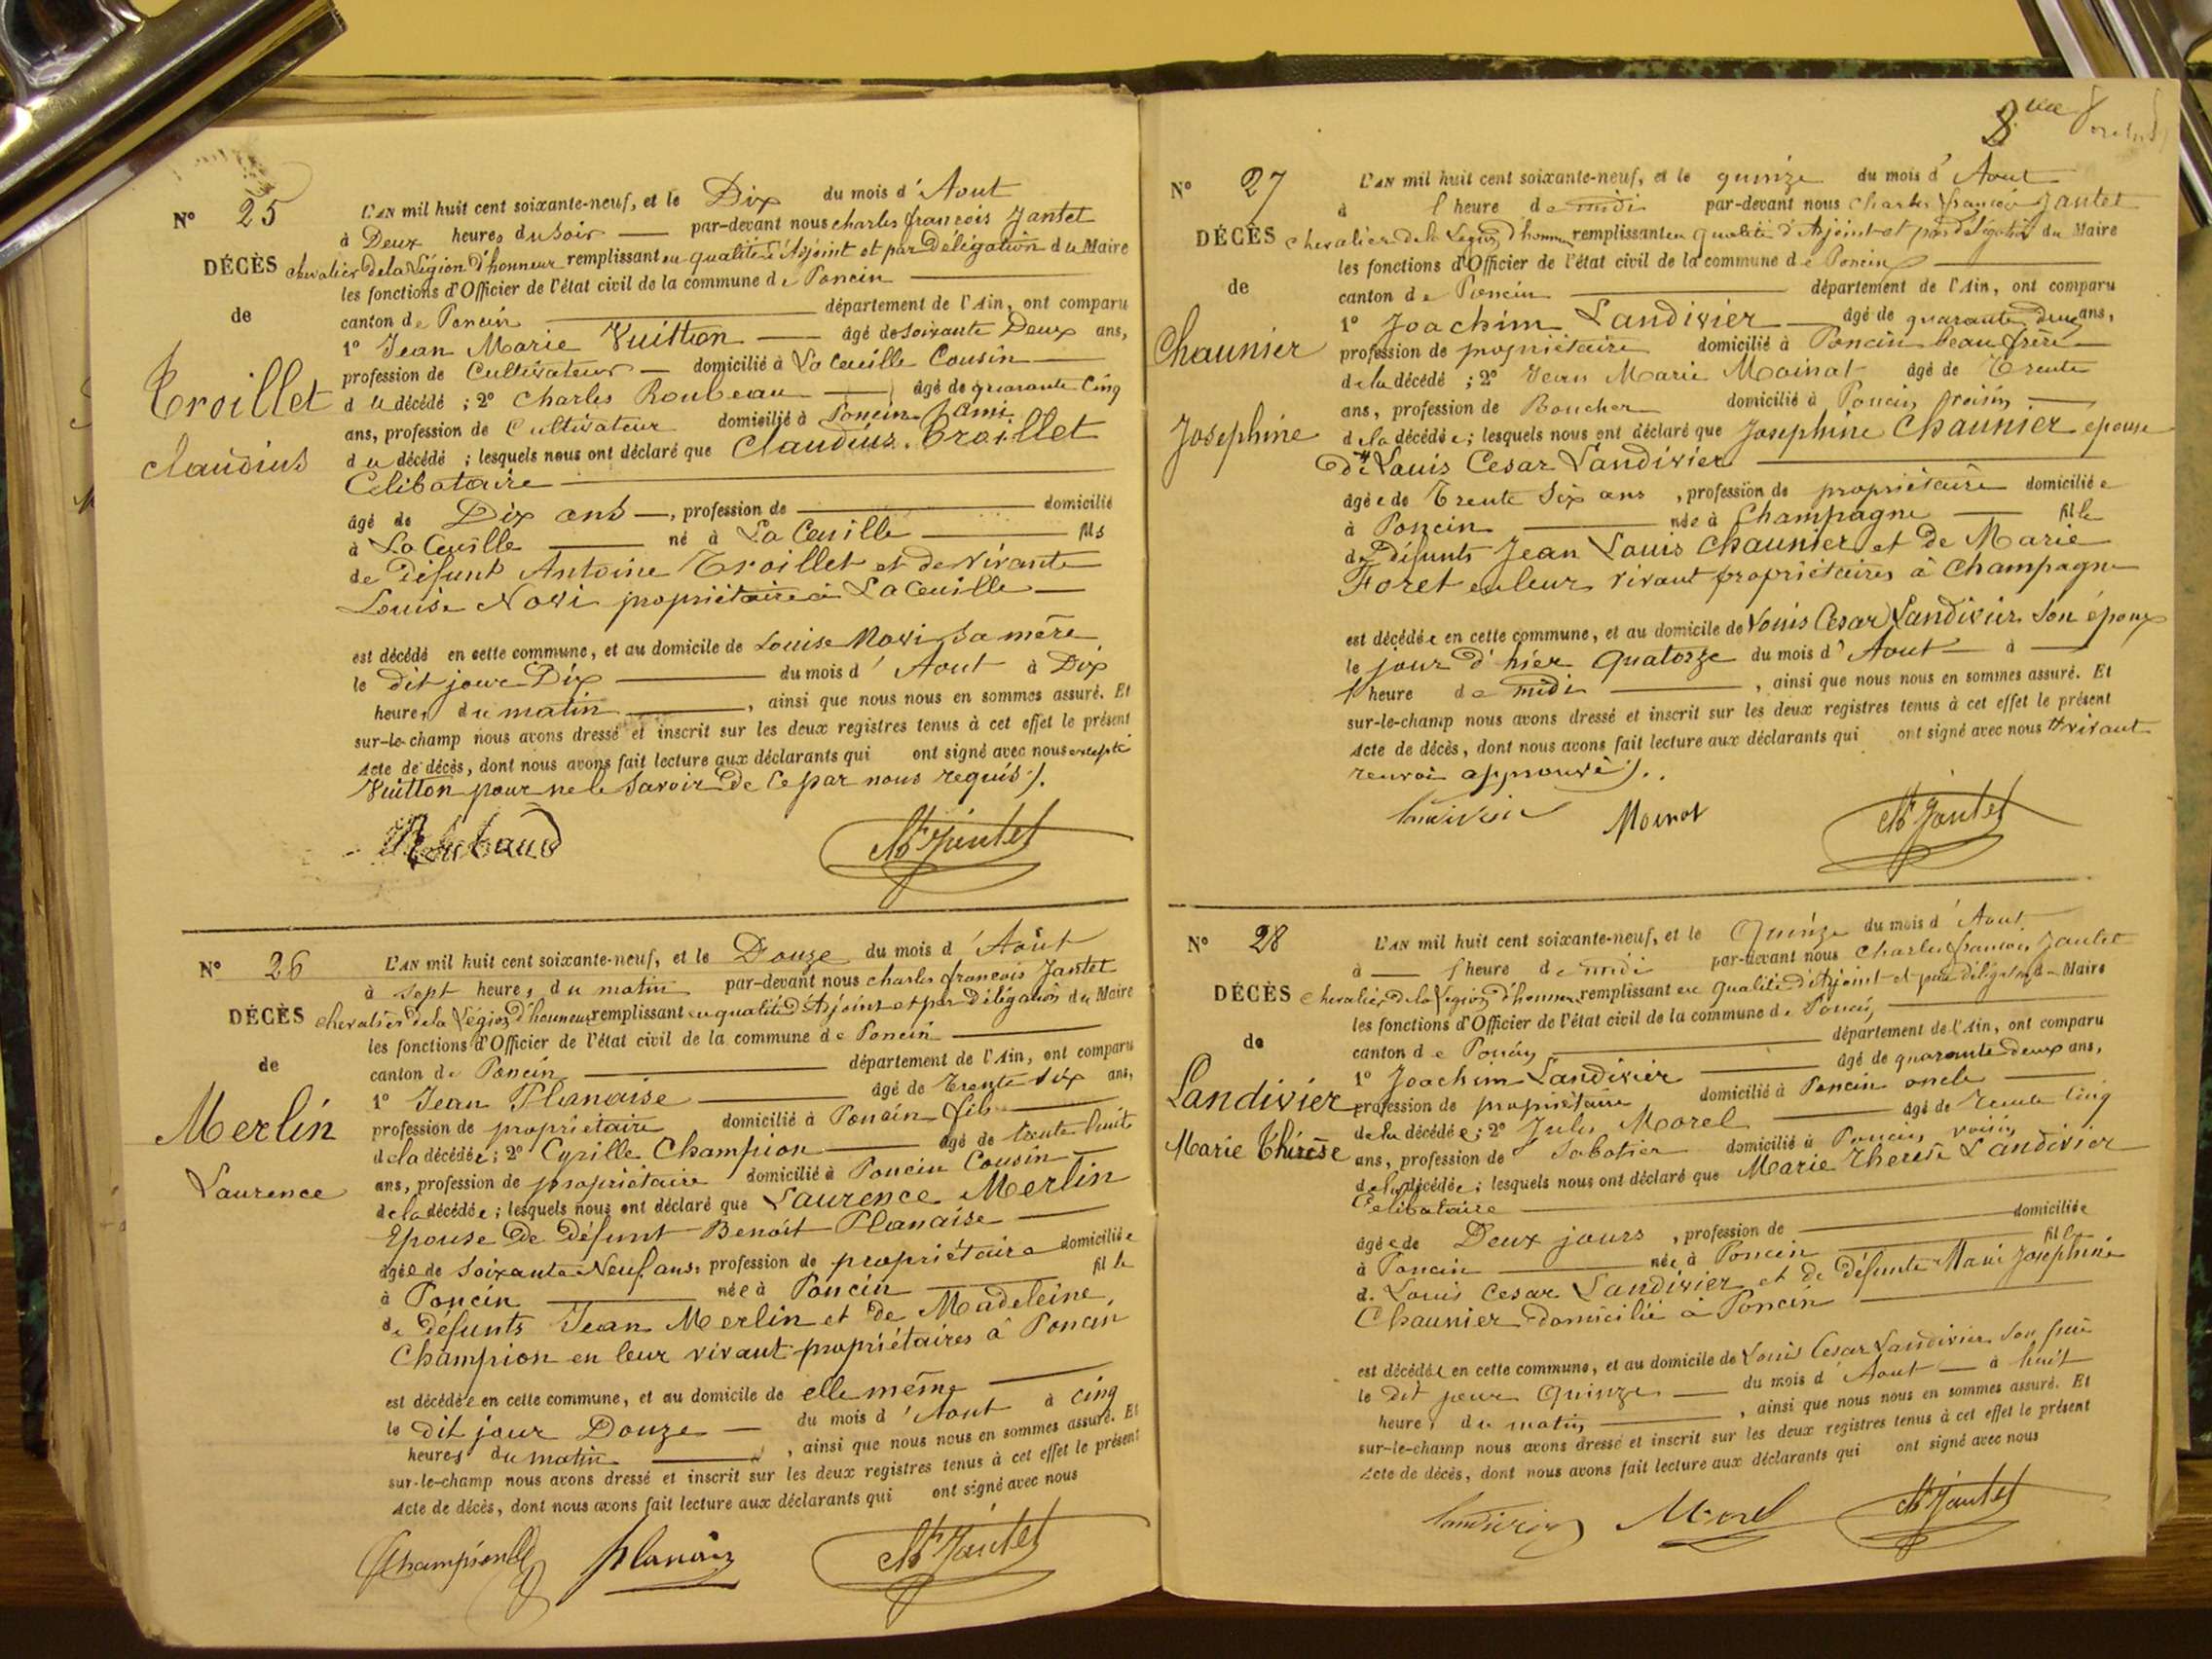 N° 25
DÉCÈS
de
Troillet
Claudius
L'AN mil huit cent soixante-neuf, et le Dix du mois d'Aout
à Deux heures du soir par-devant nous charles françois Jantet
chevalier de la Légion d'honneur remplissant en qualité d'Adjoint et par Délégation du Maire
les fonctions d'Officier de l'état civil de la commune de Poncin
canton de Poncin département de l'Ain, ont comparu
1° Jean Marie Vuitton âgé de soixante Deux ans,
profession de Cultivateur domicilié à La Cueille Cousin
du décédé ; 2° Charles Roubeau âgé de quarante Cinq
ans, profession de Cultivateur domicilié à Poncin ami
du décédé ; lesquels nous ont déclaré que Claudius Troillet
Celibataire
âgé de Dix ans, profession de domicilié
à La Cueille né à La Cueille fils
de Défunt Antoine Troillet et de vivante
Louise Novi propriétaire à La Cueille
est décédé en cette commune, et au domicile de Louise Novi sa mère
le dit jour Dix du mois d'Aout à Dix
heures du matin, ainsi que nous nous en sommes assuré. Et
sur-le-champ nous avons dressé et inscrit sur les deux registres tenus à cet effet le présent
Acte de décès, dont nous avons fait lecture aux déclarants qui ont signé avec nous excepté
Vuitton pour ne le savoir de ce par nous requis /.
Ch Jantet
N° 26
DÉCÈS
de
Merlin
Laurence
L'AN mil huit cent soixante-neuf, et le Douze du mois d'Aout
à sept heures du matin par-devant nous charles françois Jantet
chevalier de la Légion d'honneur remplissant en qualité d'Adjoint et par Délégation du Maire
les fonctions d'Officier de l'état civil de la commune de Poncin
canton de Poncin département de l'Ain, ont comparu
1° Jean Planaise âgé de Trente six ans,
profession de propriétaire domicilié à Poncin fils
de la décédée ; 2° Cyrille Champion âgé de trente huit
ans, profession de propriétaire domicilié à Poncin Cousin
de la décédée ; lesquels nous ont déclaré que Laurence Merlin
Epouse De défunt Benoit Planaise
âgée de soixante Neuf ans, profession de propriétaire domiciliée
à Poncin née à Poncin fille
de Défunts Jean Merlin et de Madeleine
Champion en leur vivant propriétaires à Poncin
est décédée en cette commune, et au domicile de elle même
le dit jour Douze du mois d'Aout à cinq
heures du matin, ainsi que nous nous en sommes assuré. Et
sur-le-champ nous avons dressé et inscrit sur les deux registres tenus à cet effet le présent
Acte de décès, dont nous avons fait lecture aux déclarants qui ont signé avec nous
Champion Planaiz Ch Jantet
N° 27
DÉCÈS
de
Chaunier
Josephine
L'AN mil huit cent soixante-neuf, et le quinze du mois d'Aout
à l'heure de midi par-devant nous Charles françois Jantet
chevalier de la Légion d'honneur remplissant en qualité d'Adjoint et par Délégation du Maire
les fonctions d'Officier de l'état civil de la commune de Poncin
canton de Poncin département de l'Ain, ont comparu
1° Joachim Landivier âgé de quarante deux ans,
profession de propriétaire domicilié à Poncin beau frère
de la décédé ; 2° Jean Marie Moinat âgé de Trente
ans, profession de Boucher domicilié à Poncin voisin
de la décédée ; lesquels nous ont déclaré que Josephine Chaunier epouse
De Louis Cesar Landivier
âgée de Trente Six ans, profession de propriétaire domiciliée
à Poncin née à Champagne fille
de défunts Jean Louis Chaunier et de Marie
Foret en leur vivant propriétaires à Champagne
est décédée en cette commune, et au domicile de Louis Cesar Landivier son époux
le jour d'hier quatorze du mois d'Aout à
l'heure de midi, ainsi que nous nous en sommes assuré. Et
sur-le-champ nous avons dressé et inscrit sur les deux registres tenus à cet effet le présent
Acte de décès, dont nous avons fait lecture aux déclarants qui ont signé avec nous # vivant
renvoi approuvé /.
Landivier Moinat Ch Jantet
N° 28
DÉCÈS
de
Landivier
Marie Thérèse
L'AN mil huit cent soixante-neuf, et le Quinze du mois d'Aout
à l'heure de midi par-devant nous Charles françois Jantet
chevalier de la Légion d'honneur remplissant en qualité d'Adjoint et par délégation du Maire
les fonctions d'Officier de l'état civil de la commune de Poncin
canton de Poncin département de l'Ain, ont comparu
1° Joachim Landivier âgé de quarante deux ans,
profession de propriétaire domicilié à Poncin oncle
de la décédée ; 2° Jules Morel âgé de Trente Cinq
ans, profession de Sabotier domicilié à Poncin voisin
de la décédée ; lesquels nous ont déclaré que Marie Therese Landivier
Celibataire
âgée de Deux jours, profession de domiciliée
à Poncin née à Poncin fille
de Louis Cesar Landivier et de défunte Marie Josephine
Chaunier domicilié à Poncin
est décédée en cette commune, et au domicile de Louis Cesar Landivier son père
le Dit jour Quinze du mois d'Aout à huit
heures du matin, ainsi que nous nous en sommes assuré. Et
sur-le-champ nous avons dressé et inscrit sur les deux registres tenus à cet effet le présent
Acte de décès, dont nous avons fait lecture aux déclarants qui ont signé avec nous
Landivier Morel Ch Jantet